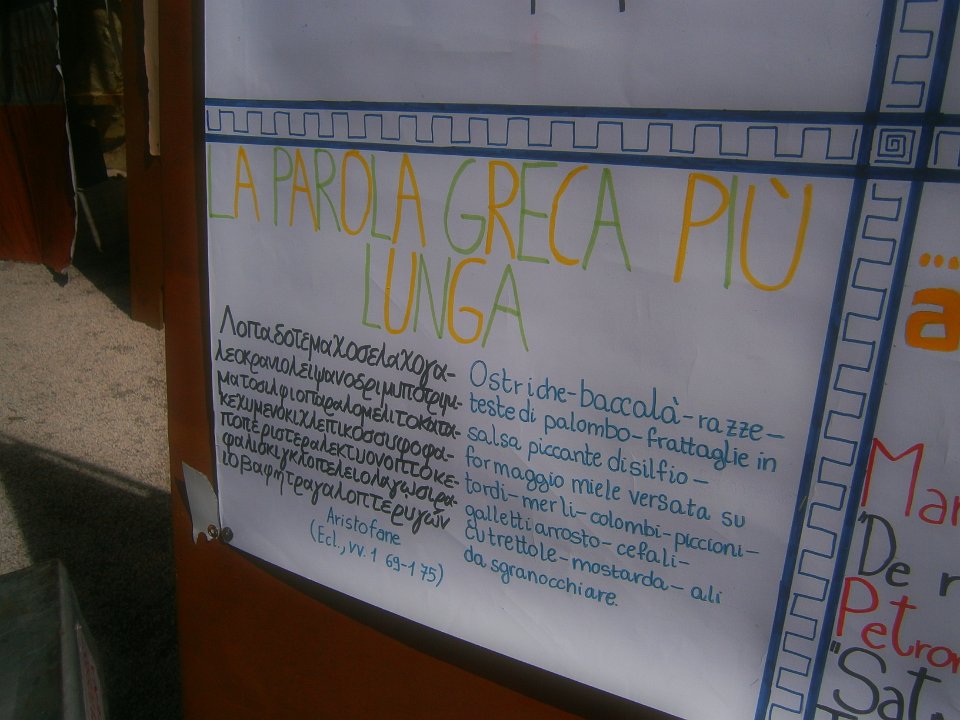 LA PAROLA GRECA PIÙ
LUNGA
Λοπαδοτεμαχοσελαχογα-
λεοκρανιολειψανοδριμυποτριμ-
ματοσιλφιοπαραλομελιτοκατα-
κεχυμενοκιχλεπικοσσυφοφα-
ττοπεριστεραλεκτυονοπτοκε-
φαλιοκιγκλοπελειολαγωοσιρα-
ιοβαφητραγαλοπτερυγών
Aristofane
(Ecl., vv. 1 69-175)
Ostriche-baccalà-razze-
teste di palombo-frattaglie in
salsa piccante di silfio-
formaggio miele versata su
tordi-merli-colombi-piccioni-
galletti arrosto-cefali-
cutrettole-mostarda-ali
da sgranocchiare.
...
a
Mar
"De
Petron
"Sat